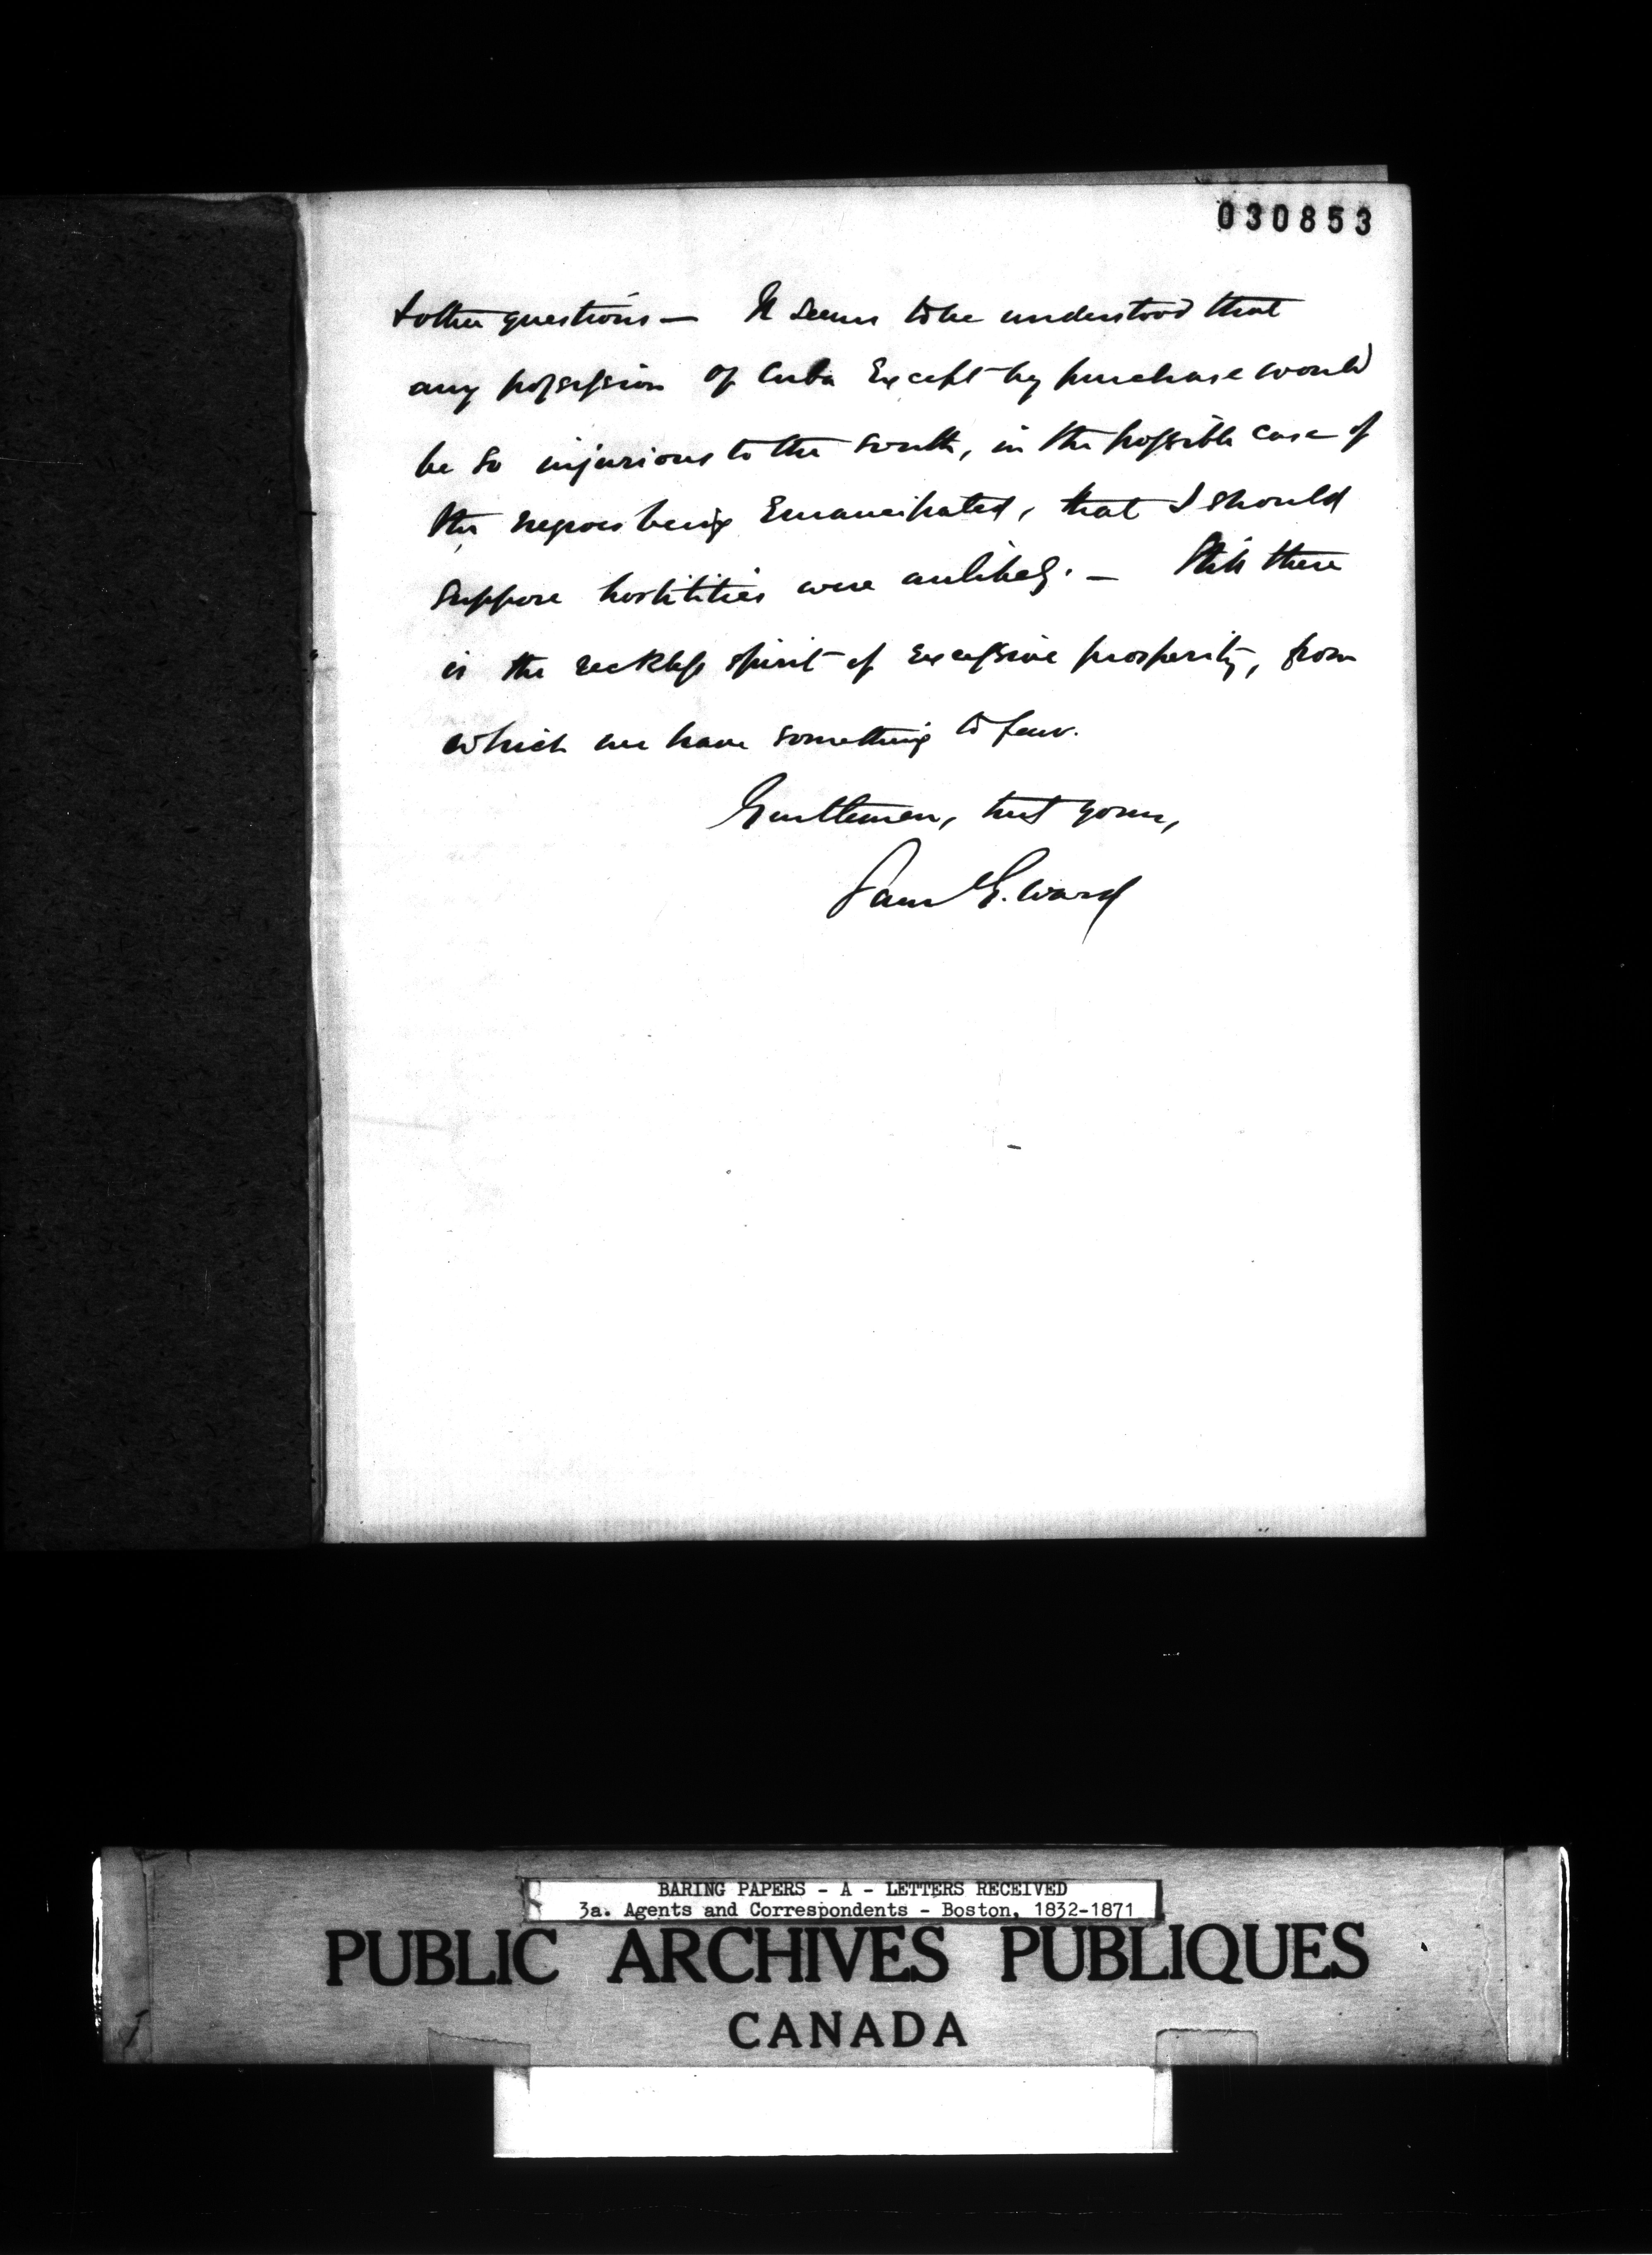 030853
& other questions — It seems to be understood that
any possession of Cuba Except by purchase would
be so injurious to the south, in the possible case of
the negroes being Emancipated, that I should
suppose hostilities were unlikely. — Still there
is the reckless spirit of excessive prosperity, from
which we have something to fear.
Gentlemen, yours,
Sam G. Ward
BARING PAPERS - A - LETTERS RECEIVED
3a. Agents and Correspondents - Boston, 1832-1871
PUBLIC ARCHIVES PUBLIQUES
CANADA